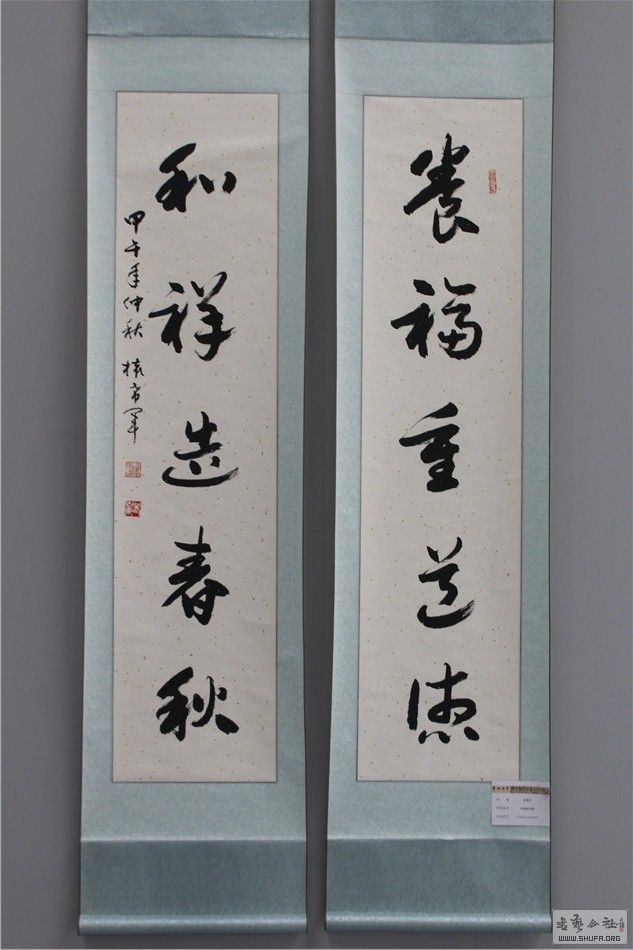 养福重道德
和祥造春秋
甲午年仲秋
书艺公社
WWW.SHUFA.ORG